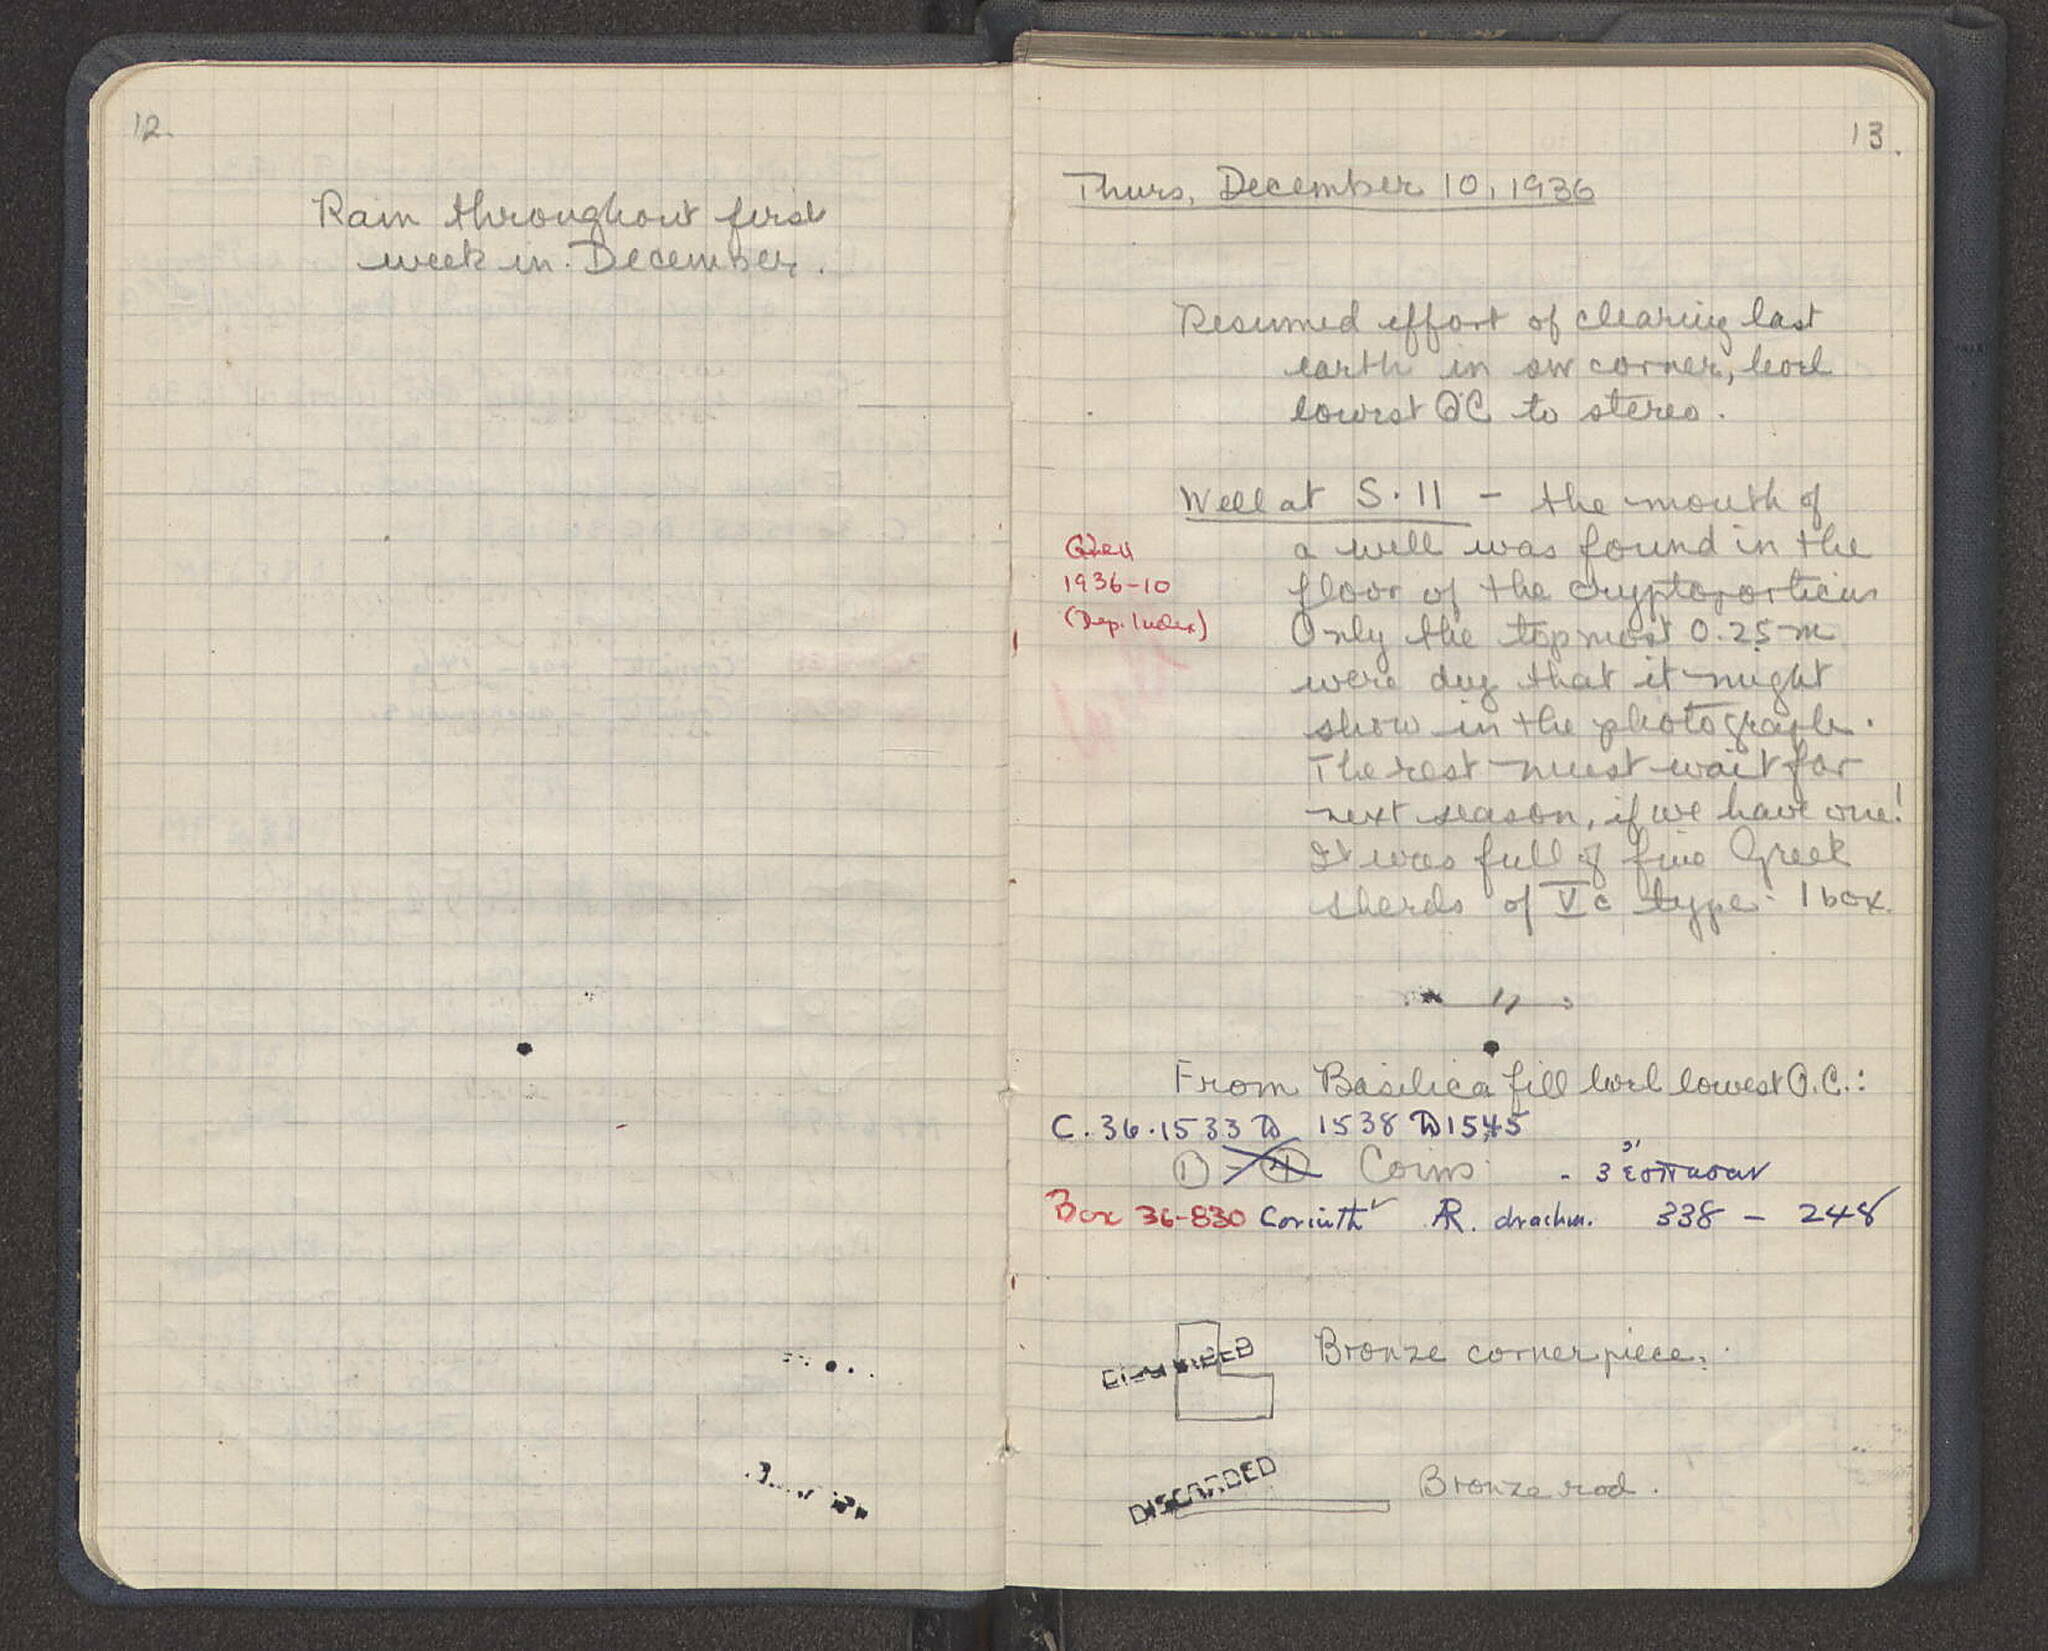 12.
Rain throughout first
week in December.
13.
Thurs, December 10, 1936
Resumed effort of clearing last
earth in SW corner, level
lowest OC to stereo.
Well at S.11 - the mouth of
a well was found in the
floor of the cryptoporticus
Only the topmost 0.25 m
were dug that it might
show in the photograph.
The rest must wait for
next season, if we have one!
It was full of fine Greek
sherds of Vc type. 1 box.
1936-10
(Dep. Index)
From Basilica fill level lowest O.C.:
C.36.1533 1538 1545
① - ④ Coins - 3
Box 36-830 Corinth AR. drachm. 338 - 248
Bronze corner piece.
DISCARDED
Bronze rod.